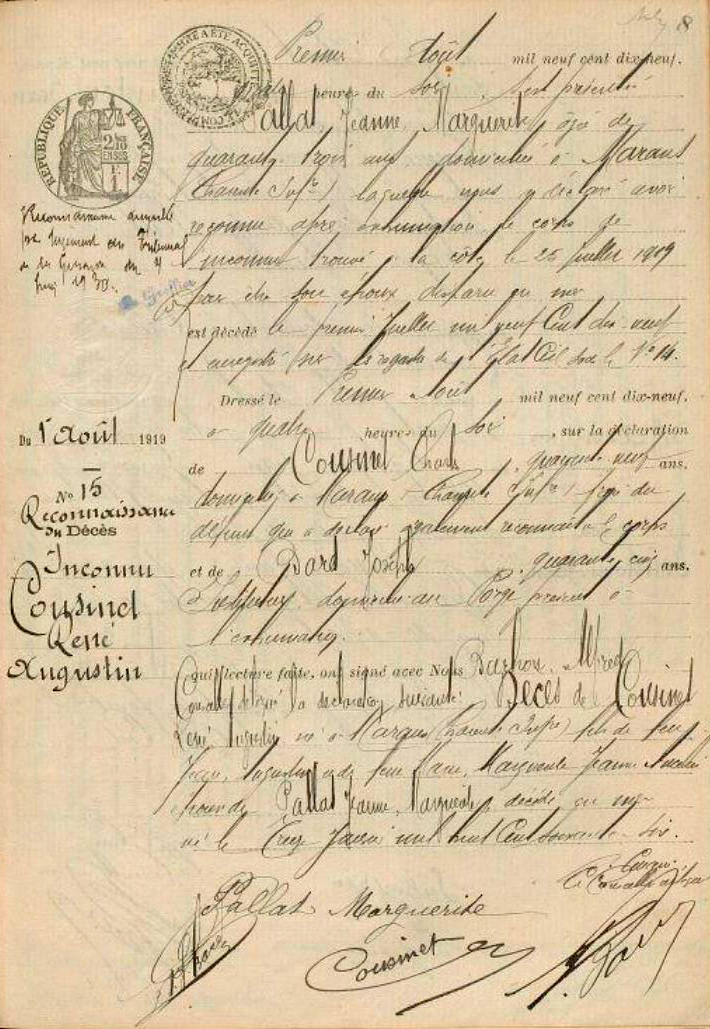 8
Premier Août mil neuf cent dix-neuf.
heures du Soir s'est présentée
Pallat, Jeanne Marguerite, âgé de
quarante trois ans domiciliée à Marans
(Charente Infre) laquelle nous y déclaré avoir
reconnu après exhumation le corps de
l'inconnu trouvé à la côte le 25 Juillet 1919
pour être son époux disparu en mer
est décédé le premier Juillet mil neuf Cent dix-neuf
et enregistré sur les registres de l'Etat Civil sous le No 14.
RÉPUBLIQUE FRANÇAISE
Reconnaissance annulée
par Jugement du Tribunal
de la Gironde du 7
1930.
Le Greffier
Dressé le Premier Août mil neuf cent dix-neuf,
à quatre heures du Soir, sur la déclaration
de Cousinet Charles, quarante neuf ans,
domicilié à Marans (Charente Infre) frère du
défunt qui a déclaré également reconnaître le corps
et de Dard Joseph, quarante cinq ans,
domicilié au Porge présent à
l'exhumation.
Du 1er Août 1919
No 15
Reconnaissance
du Décès
Inconnu
Cousinet
René
Augustin
Qui, lecture faite, ont signé avec Nous Alfred
la déclaration suivante: Décès de Cousinet
René Augustin né à Marans (Charente Infre) fils de feu
Jean, Augustin et de feue Marie, Marguerite Jeanne
époux de Pallat Jeanne, Marguerite, décédé en mer
né le Treize Janvier mil huit Cent soixante six.
Pallat Marguerite
Cousinet